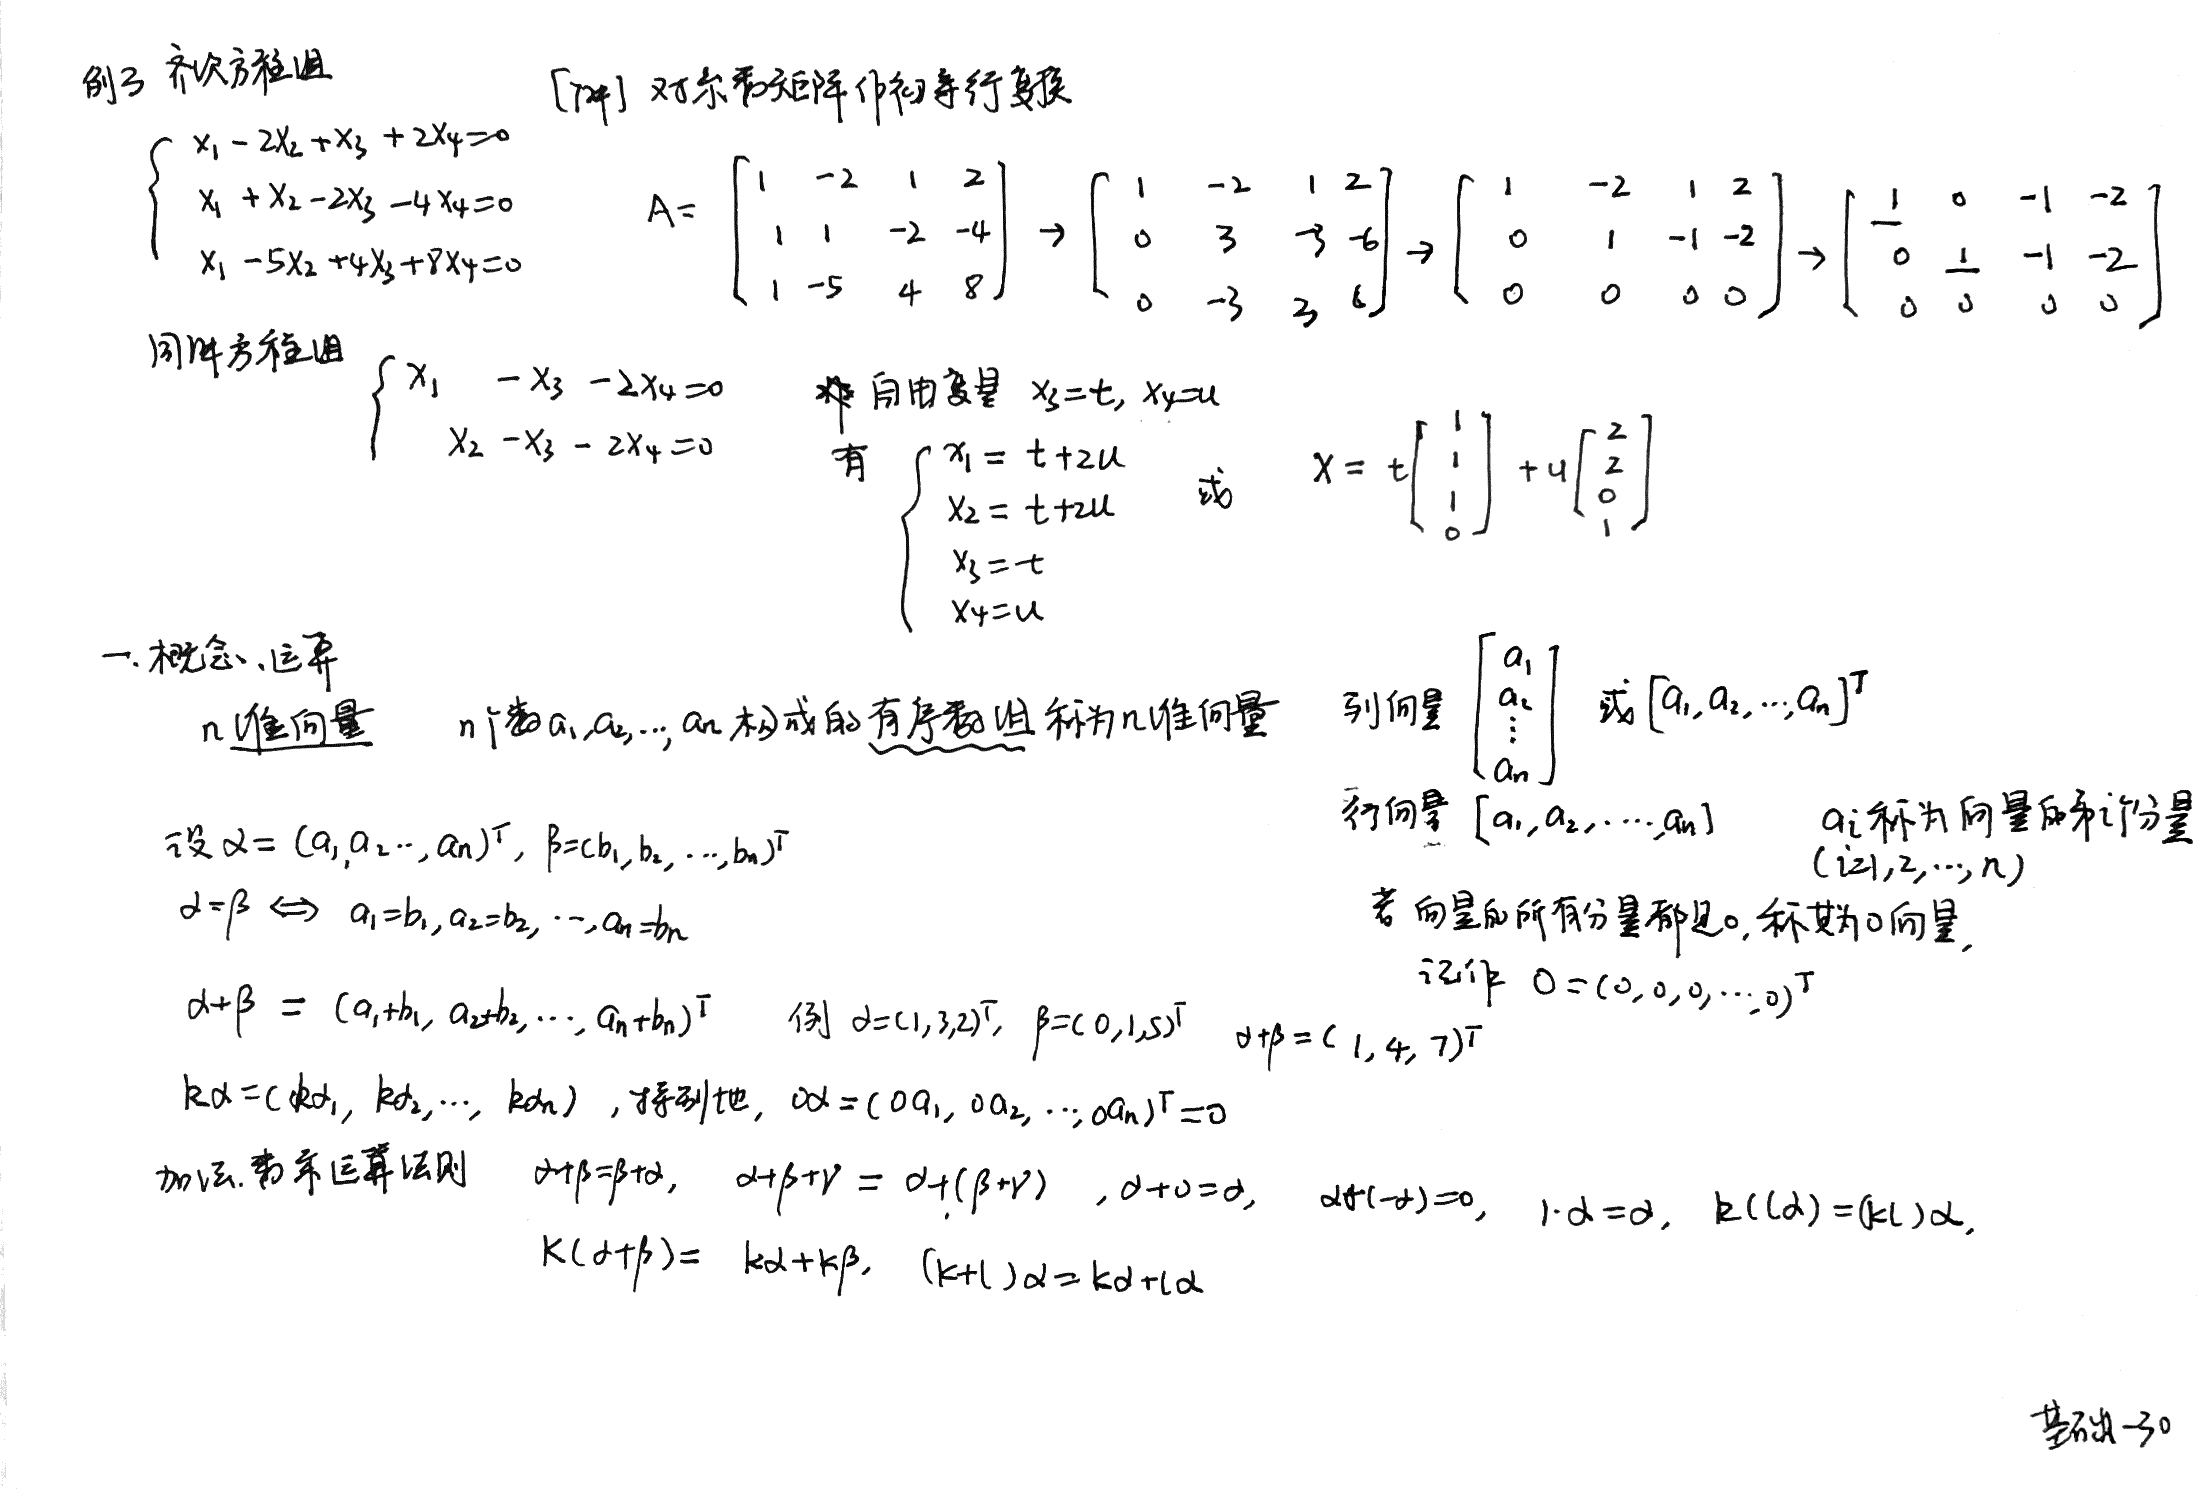 例3 齐次方程组
{ x₁-2x₂+x₃+2x₄=0
x₁+x₂-2x₃-4x₄=0
x₁-5x₂+4x₃+8x₄=0
[解] 对系数矩阵作初等行变换
A= [1 -2 1 2; 1 1 -2 -4; 1 -5 4 8] → [1 -2 1 2; 0 3 -3 -6; 0 -3 3 6] → [1 -2 1 2; 0 1 -1 -2; 0 0 0 0] → [1 0 -1 -2; 0 1 -1 -2; 0 0 0 0]
同解方程组 { x₁ -x₃-2x₄=0
x₂-x₃-2x₄=0
自由变量 x₃=t, x₄=u
有 { x₁=t+2u
x₂=t+2u
x₃=t
x₄=u
或 X=t[1; 1; 1; 0]+u[2; 2; 0; 1]
一.概念、运算
n维向量 n个数a₁,a₂,…,aₙ构成的有序数组称为n维向量
列向量 [a₁; a₂; ⋮; aₙ] 或 [a₁,a₂,…,aₙ]ᵀ
行向量 [a₁,a₂,…,aₙ] aᵢ称为向量的第i个分量
(i=1,2,…,n)
若向量的所有分量都是0,称其为0向量,
记作 0=(0,0,0,…,0)ᵀ
设α=(a₁,a₂…,aₙ)ᵀ, β=(b₁,b₂,…,bₙ)ᵀ
α=β ⇔ a₁=b₁,a₂=b₂,…,aₙ=bₙ
α+β = (a₁+b₁, a₂+b₂,…, aₙ+bₙ)ᵀ 例 α=(1,3,2)ᵀ, β=(0,1,5)ᵀ α+β=(1,4,7)ᵀ
kα=(kα₁, kα₂,…, kαₙ) ,特别地, 0α=(0a₁, 0a₂,…,0aₙ)ᵀ=0
加法.数乘运算法则 α+β=β+α, α+β+γ = α+(β+γ) ,α+0=α, α+(-α)=0, 1·α=α, k(lα)=(kl)α,
k(α+β)= kα+kβ, (k+l)α=kα+lα
基础-30